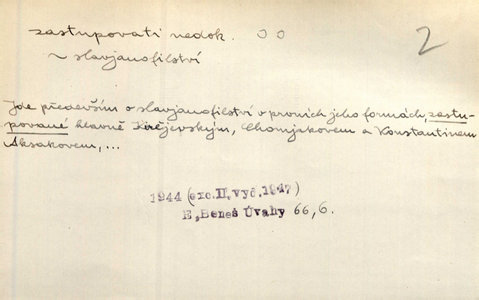 zastupovati nedok. OO
2
~ slavjanofilství
Jde především o slavjanofilství v prvních jeho formách, zastu-
pované hlavně Kirějevským, Chomjakovem a Konstantinem
Aksakovem, ...
1944 (exc. II. vyd. 1947)
E. Beneš Úvahy 66, 6.